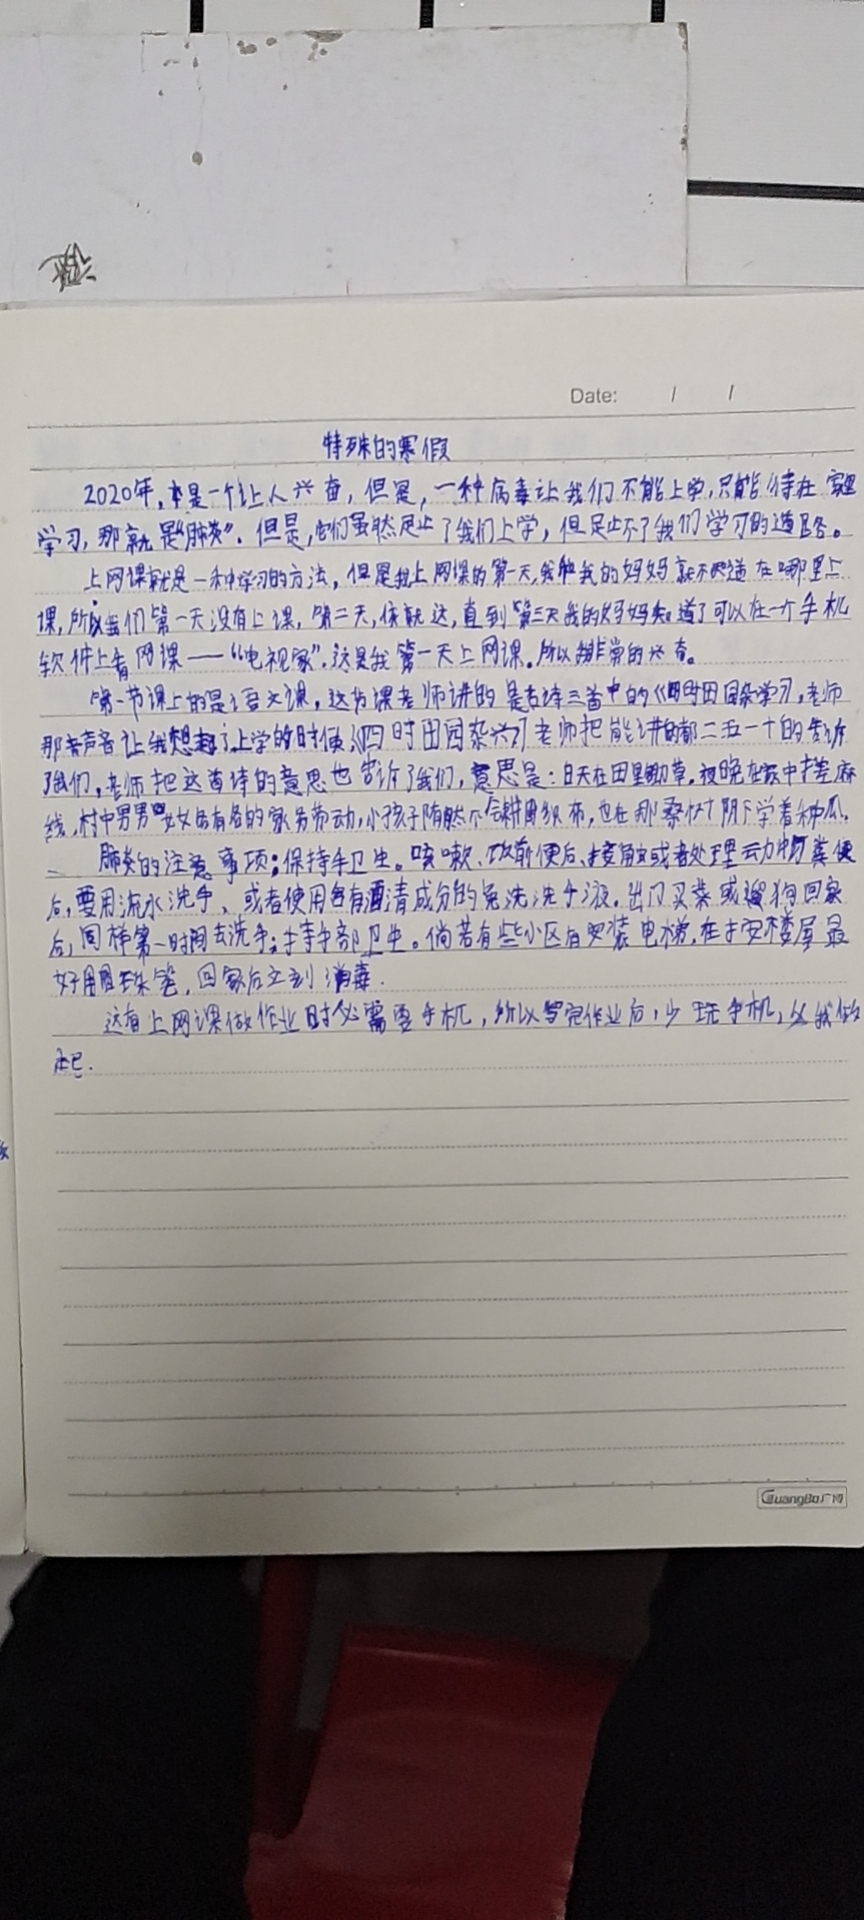 Date: / /
特殊的寒假
2020年,本是一个让人兴奋,但是,一种病毒让我们不能上学,只能待在家里
学习,那就是"肺炎".但是,它们虽然阻止了我们上学,但阻止不了我们学习的道路。
上网课就是一种学习的方法,但是我上网课的第一天,我和我的妈妈就不知道在哪里上
课,所以我们第一天没有上课,第二天,依就这,直到第三天我的妈妈知道了可以在一个手机
软件上看网课——"电视家".这是我第一天上网课.所以我非常的兴奋。
第一节课上的是语文课,这节课老师讲的是古诗三首中的《四时田园杂学习,老师
那声音让我想起了上学的时候,《四时田园杂兴》老师把能讲的都二五一十的告诉
了我们,老师把这首诗的意思也告诉了我们,意思是:白天在田里锄草.夜晚在家中搓麻
线,村中男男女女各有各的家务劳动,小孩子虽然不会耕田织布,也在那桑树阴下学着种瓜.
肺炎的注意事项:保持手卫生。咳嗽、饭前便后、接触或者处理动物粪便
后,要用流水洗手、或者使用含有酒清成分的免洗洗手液.出门买菜或遛狗回家
后,同样第一时间去洗手;持手部卫生。倘若有些小区有安装电梯,在按楼层最
好用棉签,回家后立刻消毒.
上网课做作业时必需要手机,所以写完作业后,少玩手机,从我做
起.
GuangBo广博